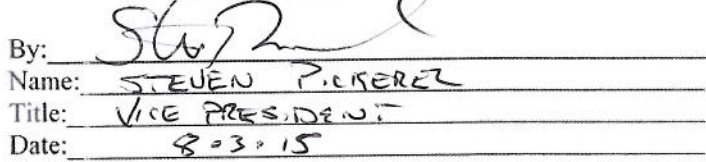 By:
Name: STEVEN PICKEREL
Title: VICE PRESIDENT
Date: 8·3·15